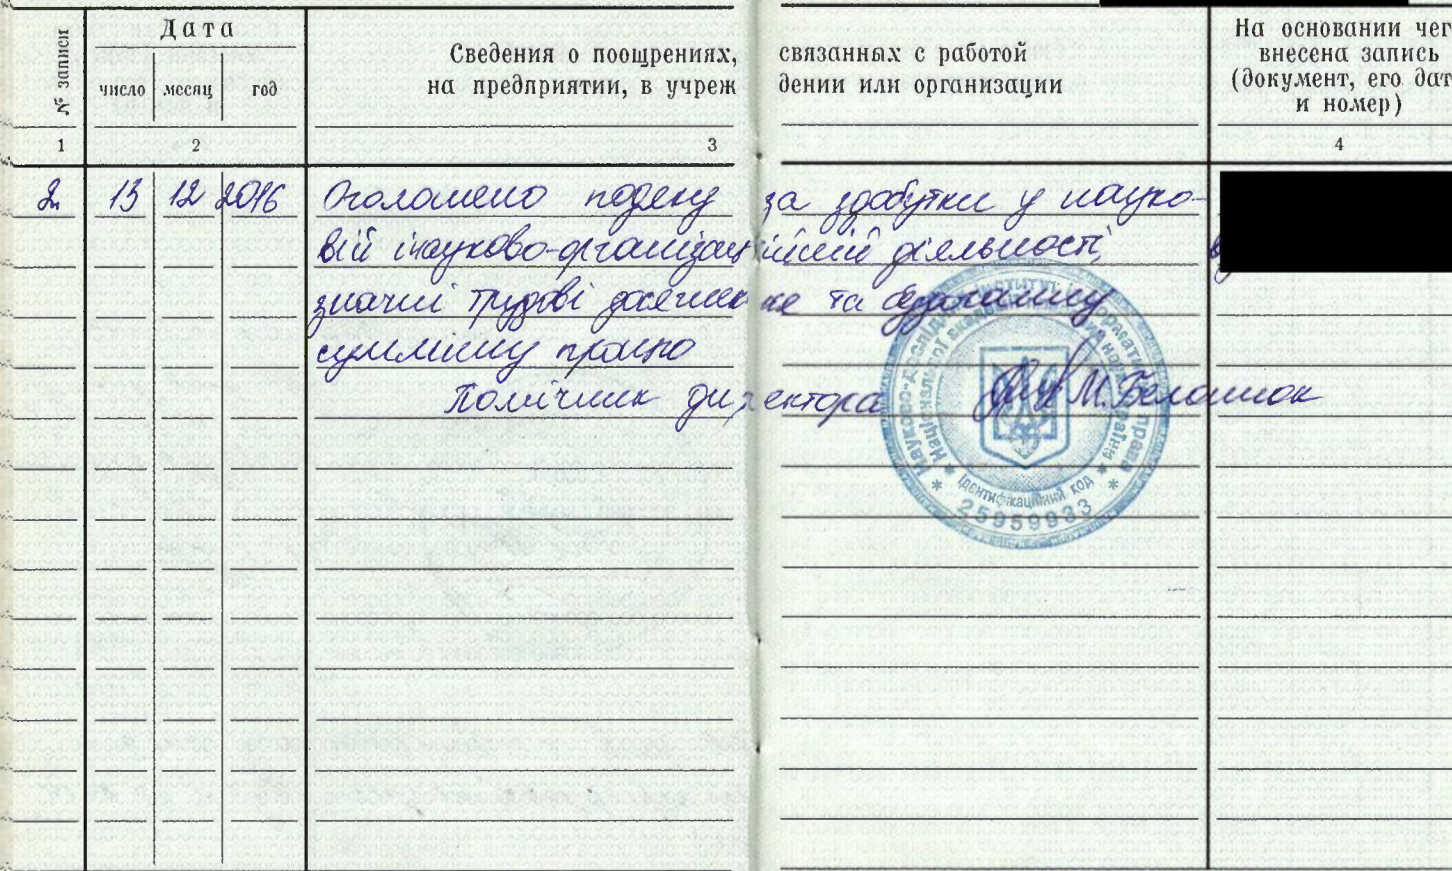 № записи
Дата
число месяц год
Сведения о поощрениях, связанных с работой
на предприятии, в учреждении или организации
На основании чег
внесена запись
(документ, его дат
и номер)
1 2 3 4
2 13 12 2016 Оголошено подяку за здобутки у науко-
вій і науково-організаційній діяльності,
значні трудові досягнення та бездоганну
сумлінну працю
Помічник директора М. Белошок
Науково-дослідний інститут інформатики і права
Національної академії правових наук України
Ідентифікаційний код
25959933